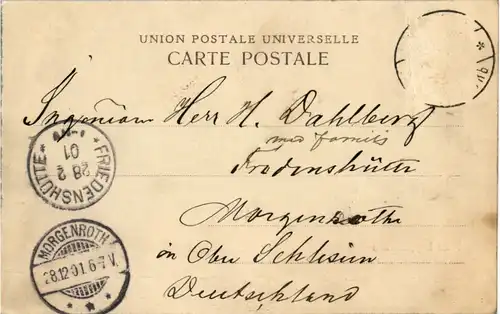 UNION POSTALE UNIVERSELLE
CARTE POSTALE
Ingeniörn Herr H. Dahlberg
med familj
Frodenshütte
Morgenrothe
in Ober Schlesien
Deutschland
* FRIEDENSHÜTTE *
28 2
01
MORGENROTH
28.12.01.6-7 V.
* * *